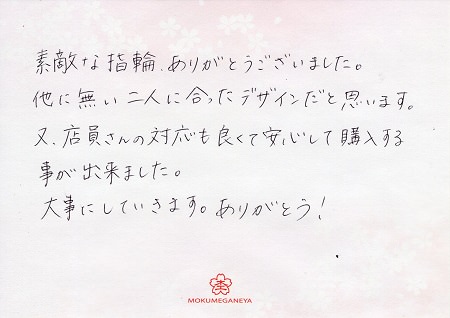 素敵な指輪、ありがとうございました。
他に無い二人に合ったデザインだと思います。
又、店員さんの対応も良くて安心して購入する
事が出来ました。
大事にしていきます。ありがとう!
MOKUMEGANEYA